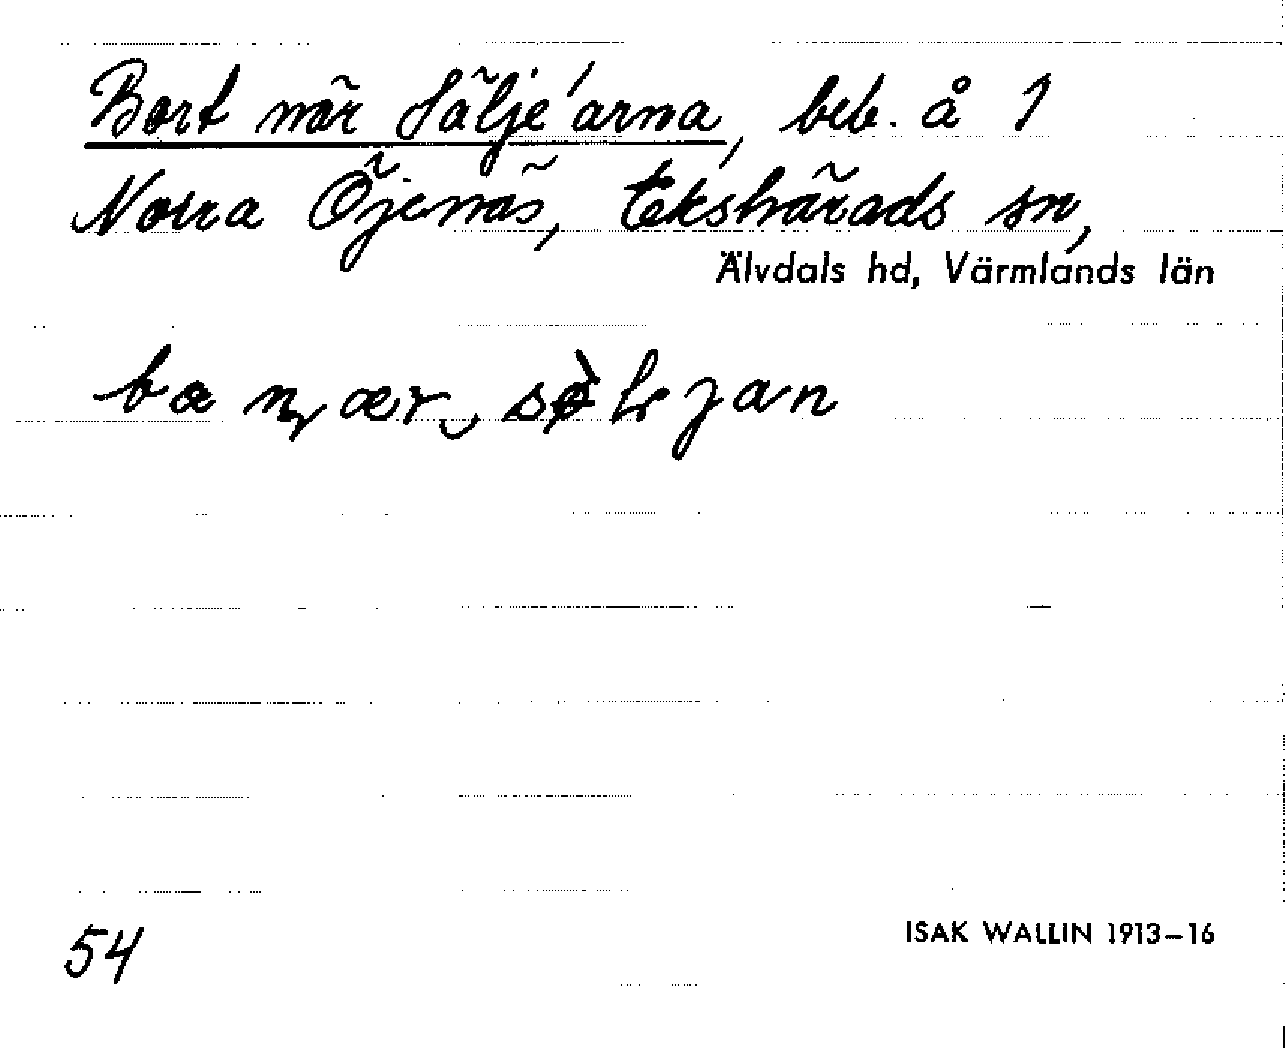 Bort när Sälje'arna, beb. å 1
Norra Öjenäs, Ekshärads sn,
Älvdals hd, Värmlands län
54
ISAK WALLIN 1913–16